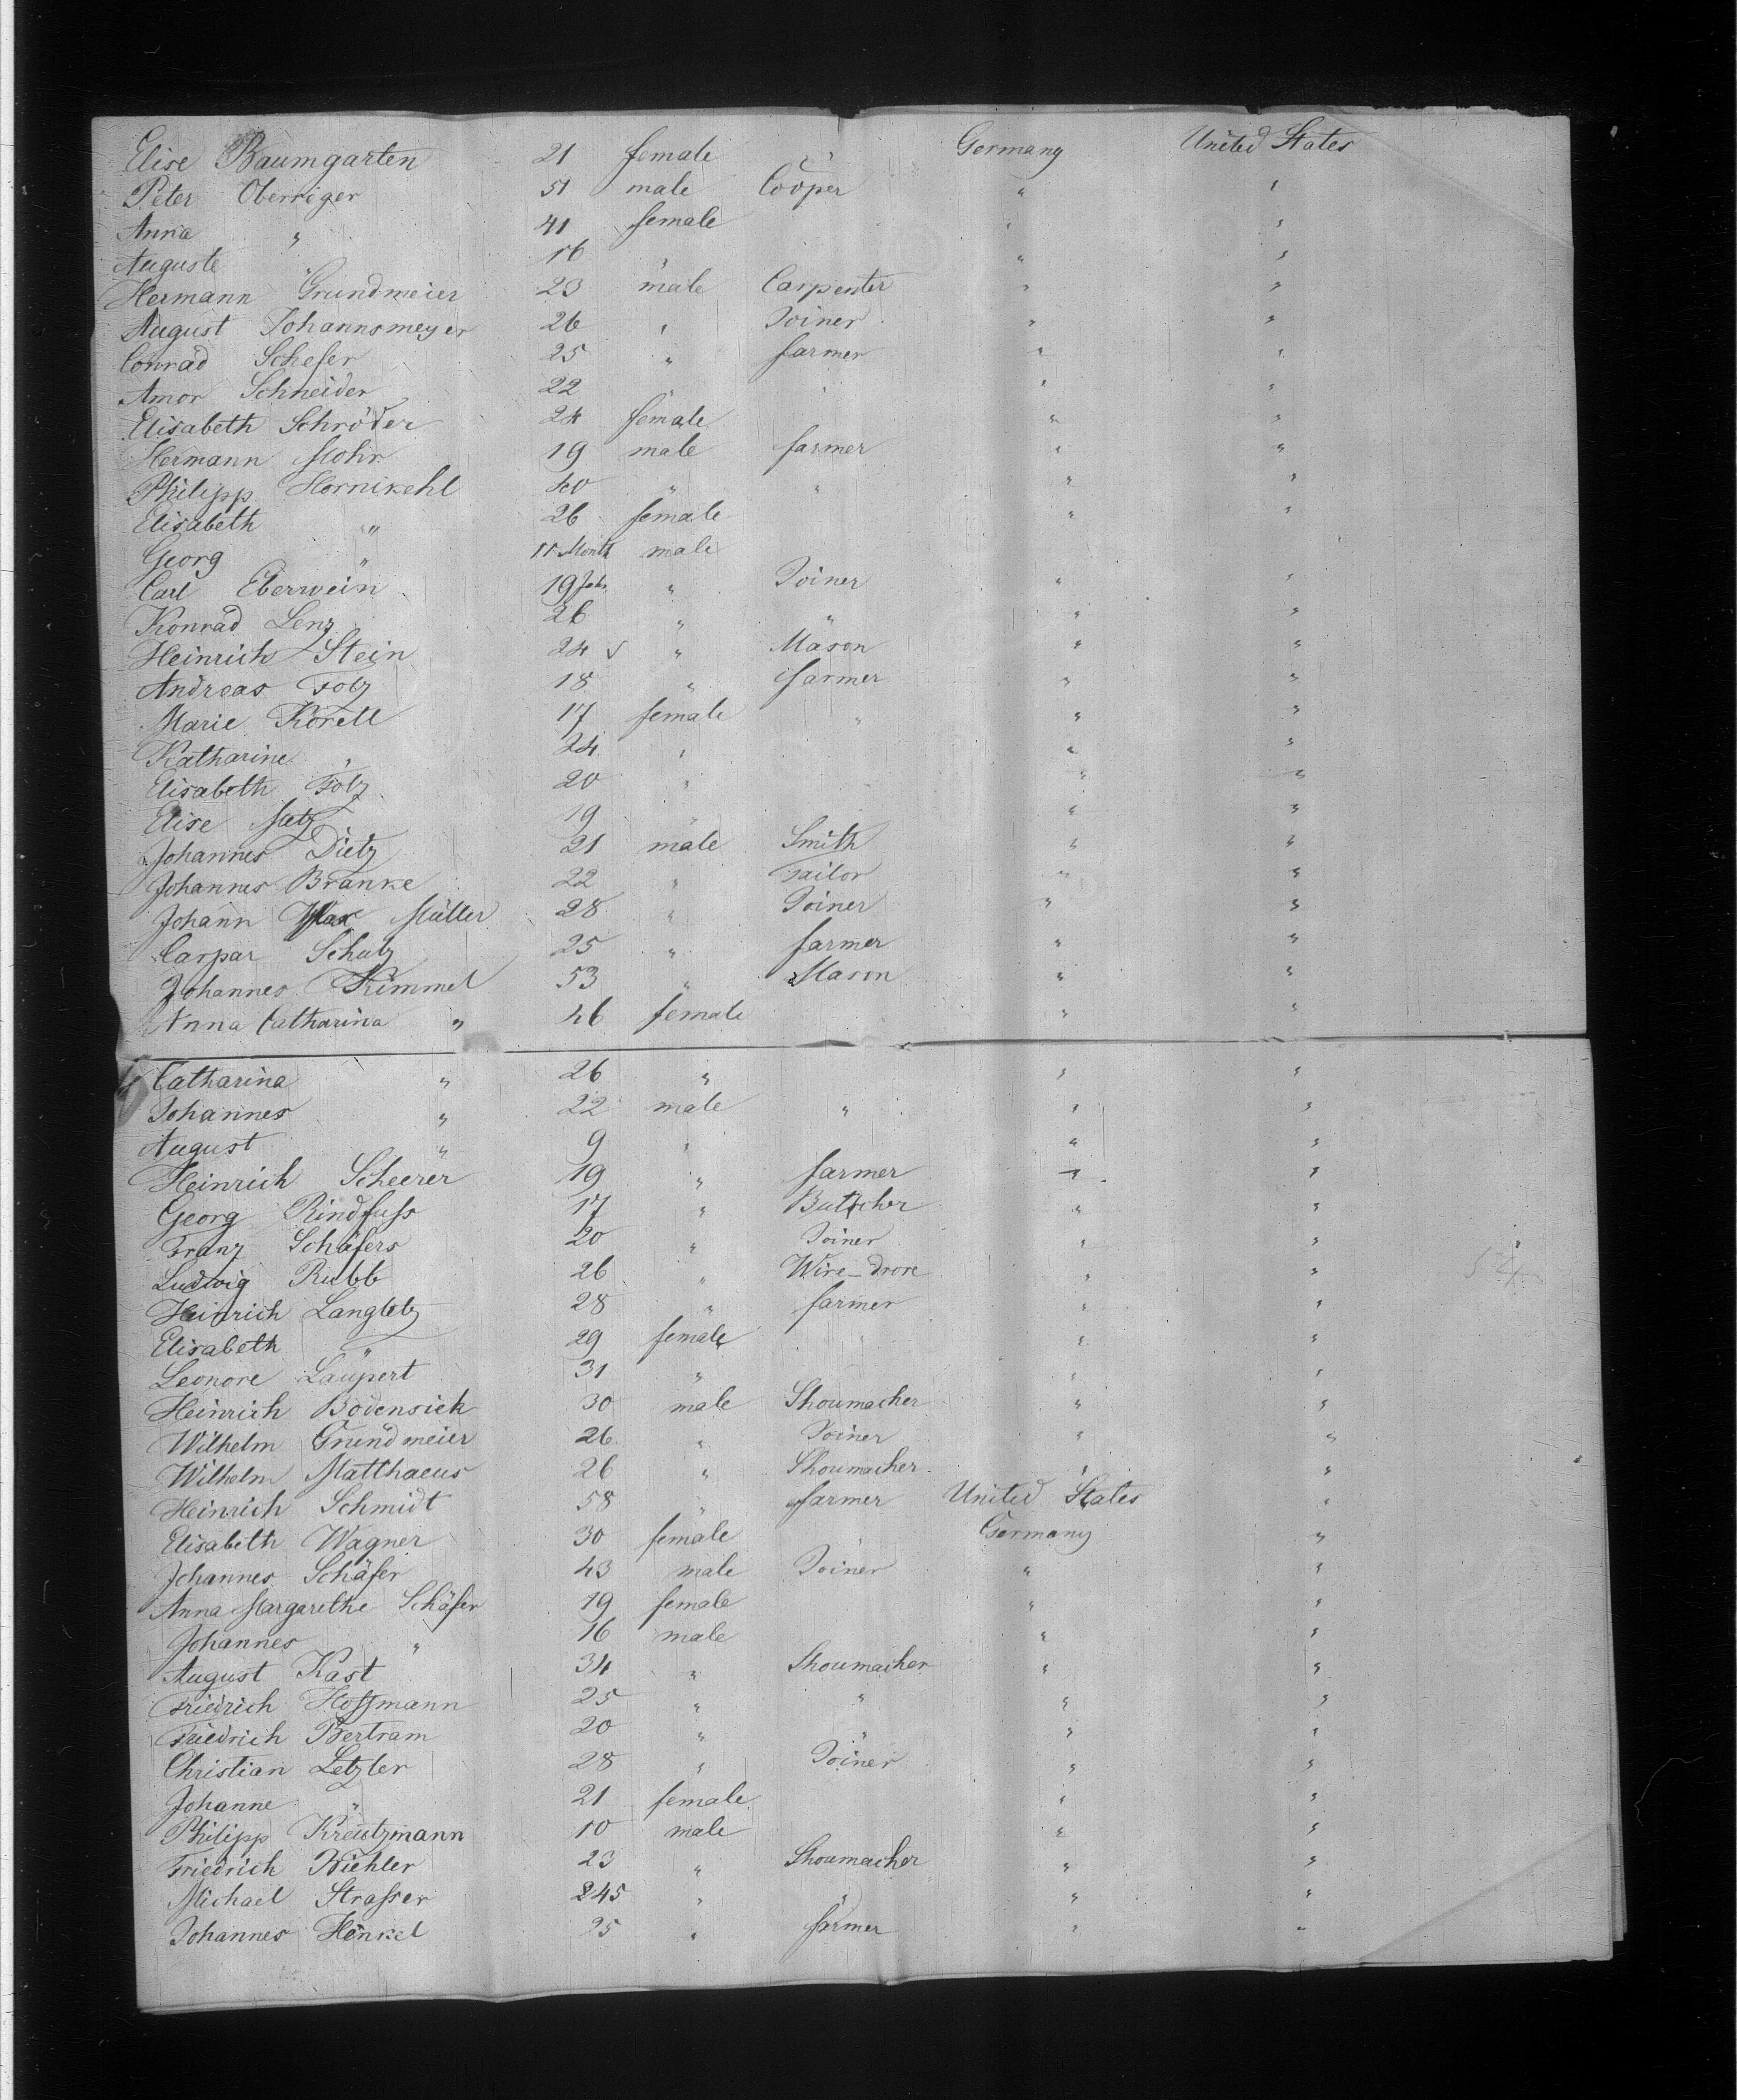 Elise Baumgarten 21 female " Germany United States
Peter Oberriger 51 male Cooper " "
Anna " 41 female " "
Auguste " 16 " " "
Hermann Grundmeier 23 male Carpenter " "
August Johannsmeyer 26 " Joiner " "
Conrad Schefer 25 " farmer " "
Amor Schneider 22 " " " "
Elisabeth Schröder 24 female " "
Hermann Mohr 19 male farmer " "
Philipp Hornikehl 40 " " " "
Elisabeth " 26 female " "
Georg " 11 Month male
Carl Eberwein 19 Jahr " Joiner " "
Konrad Lenz 26 " " " "
Heinrich Stein 24 " Mason " "
Andreas Folz 18 " farmer " "
Marie Korell 17 female " " "
Katharine " 24 " " "
Elisabeth Folz 20 " " "
Elise Metz 19 " " "
Johannes Dietz 21 male Smith " "
Johannes Branke 22 " Tailor " "
Johann Müller 28 " Joiner " "
Caspar Schutz 25 " farmer " "
Johannes Kimmel 53 " Mason " "
Anna Catharina " 46 female " "
Catharina " 26 " " "
Johannes " 22 male " " "
August " 9 " " "
Heinrich Scheerer 19 " farmer " "
Georg Rindfuss 17 " Butscher " "
Franz Schäfers 20 " Joiner " "
Ludwig Rubb 26 " Wire-drore " "
Heinrich Langlotz 28 " farmer " "
Elisabeth " 29 female " "
Leonore Laupert 31 " " "
Heinrich Bödensick 30 male Shoumacher " "
Wilhelm Grundmeier 26 " Joiner " "
Wilhelm Matthaeus 26 " Shoumacher " "
Heinrich Schmidt 58 " farmer United States "
Elisabeth Wagner 30 female " Germany "
Johannes Schäfer 43 male Joiner " "
Anna Margarethe Schäfer 19 female " "
Johannes " 16 male " "
August Kast 34 " Shoumacher " "
Friedrich Hoffmann 25 " " " "
Friedrich Bertram 20 " " " "
Christian Letzler 28 " Joiner " "
Johanne " 21 female " "
Philipp Kreutzmann 10 male " "
Friedrich Biehler 23 " Shoumacher " "
Michael Strasser 245 " " " "
Johannes Henkel 25 " farmer " "